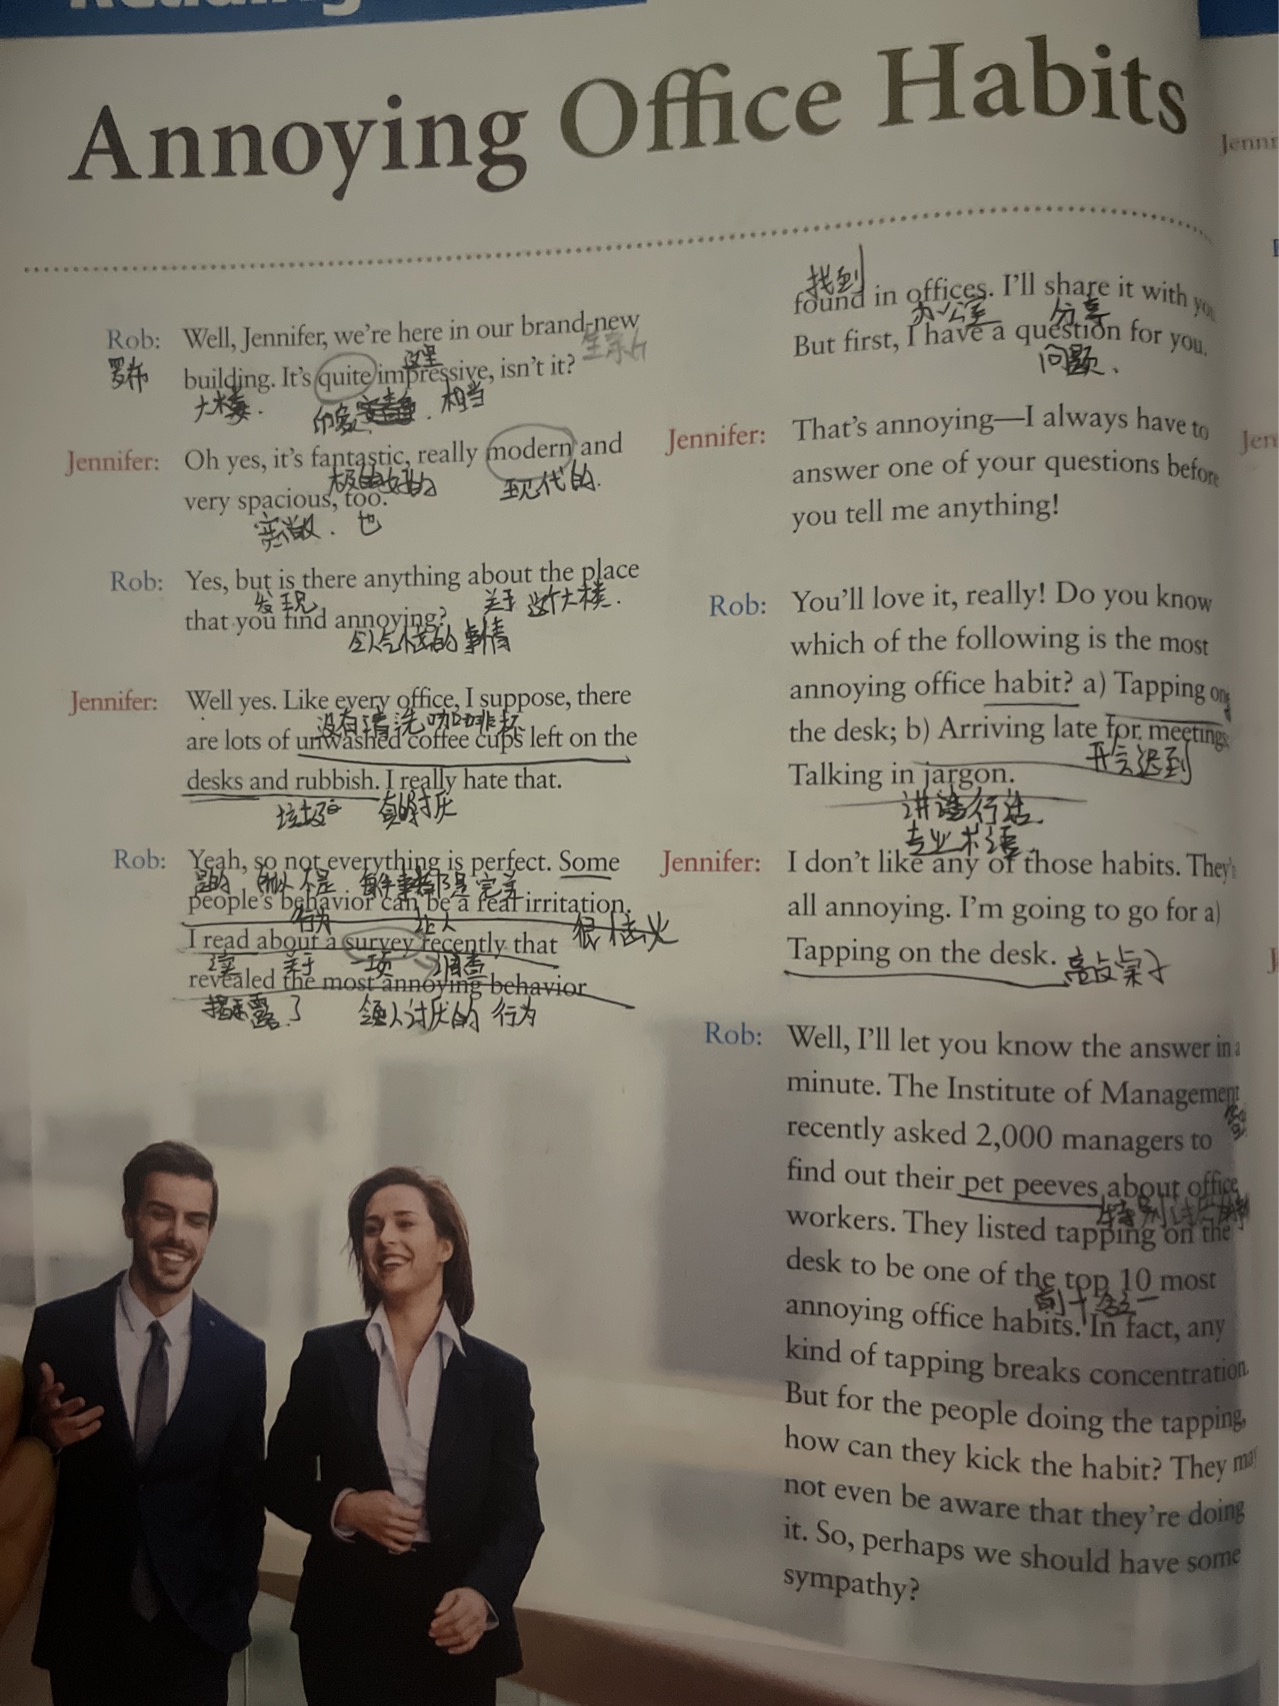 Reading
Annoying Office Habits
Rob: Well, Jennifer, we're here in our brand-new
罗布
这里
building. It's quite impressive, isn't it?
大楼.
印象
相当
Jennifer: Oh yes, it's fantastic, really modern and
极的好的
现代的.
very spacious, too.
宽敞. 也
Rob: Yes, but is there anything about the place
发现 关于 这个大楼.
that you find annoying?
事情
Jennifer: Well yes. Like every office, I suppose, there
没有清洗咖啡杯
are lots of unwashed coffee cups left on the
desks and rubbish. I really hate that.
垃圾
Rob: Yeah, so not everything is perfect. Some
是的 所以 不是 每件事都是完美
people's behavior can be a real irritation.
行为 让人 很恼火
I read about a survey recently that
读 关于 一项 调查
revealed the most annoying behavior
揭露了 令人讨厌的 行为
找到
found in offices. I'll share it with you
办公室 分享
But first, I have a question for you.
问题.
Jennifer: That's annoying—I always have to
answer one of your questions before
you tell me anything!
Rob: You'll love it, really! Do you know
which of the following is the most
annoying office habit? a) Tapping on
the desk; b) Arriving late for meetings
开会迟到
Talking in jargon.
讲 行话
专业术语
Jennifer: I don't like any of those habits. They're
all annoying. I'm going to go for a)
Tapping on the desk. 敲桌子
Rob: Well, I'll let you know the answer in a
minute. The Institute of Management
recently asked 2,000 managers to
find out their pet peeves about office
特别讨厌
workers. They listed tapping on the
desk to be one of the top 10 most
前十名之一
annoying office habits. In fact, any
kind of tapping breaks concentration.
But for the people doing the tapping,
how can they kick the habit? They may
not even be aware that they're doing
it. So, perhaps we should have some
sympathy?
Jenni
Jen